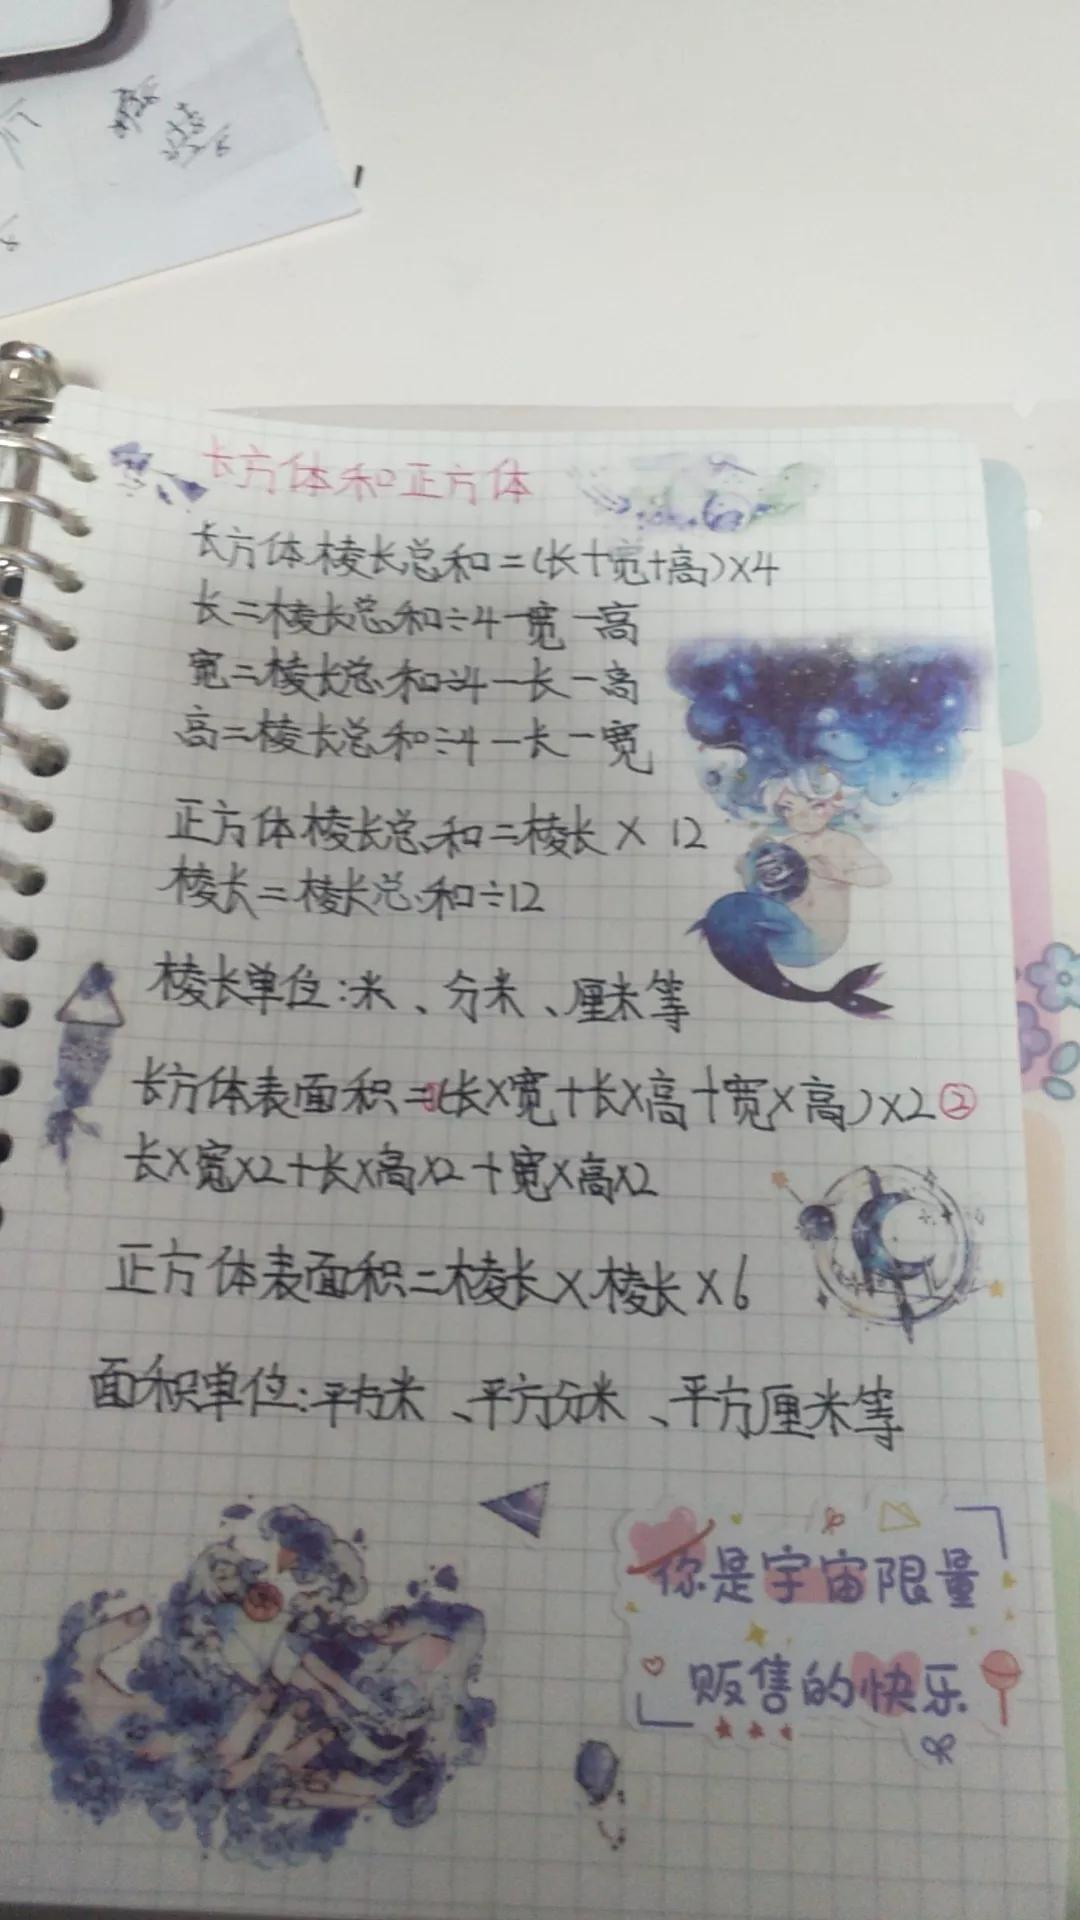 长方体和正方体
长方体棱长总和=(长+宽+高)×4
长=棱长总和÷4-宽-高
宽=棱长总和÷4-长-高
高=棱长总和÷4-长-宽
正方体棱长总和=棱长×12
棱长=棱长总和÷12
棱长单位:米、分米、厘米等
长方体表面积=①(长×宽+长×高+宽×高)×2②
长×宽×2+长×高×2+宽×高×2
正方体表面积=棱长×棱长×6
面积单位:平方米、平方分米、平方厘米等
你是宇宙限量
贩售的快乐